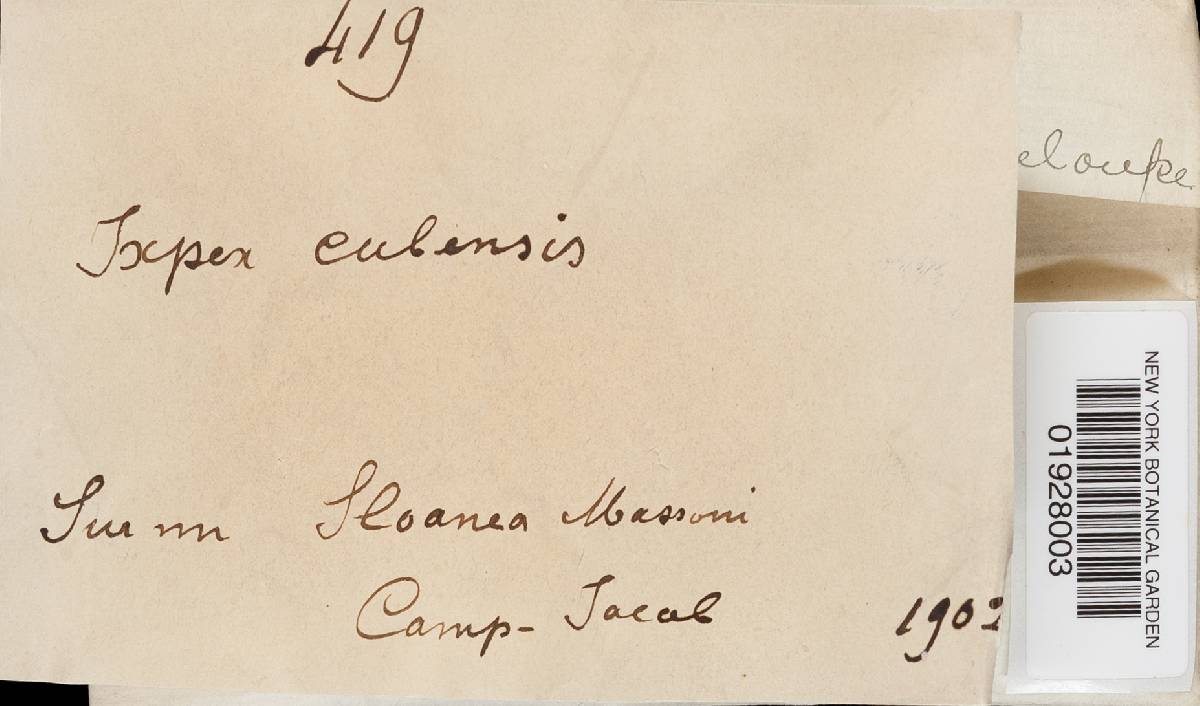 419
Ixpex cubensis
eloupe
Sur un Sloanea Massoni
Camp-Jacob
1902
NEW YORK BOTANICAL GARDEN
01928003